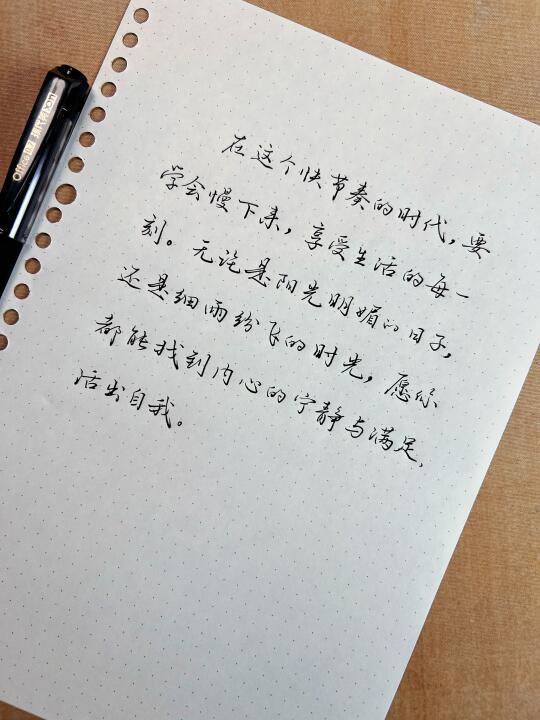 在这个快节奏的时代,要
学会慢下来,享受生活的每一
刻。无论是阳光明媚的日子,
还是细雨纷飞的时光,愿你
都能找到内心的宁静与满足,
活出自我。